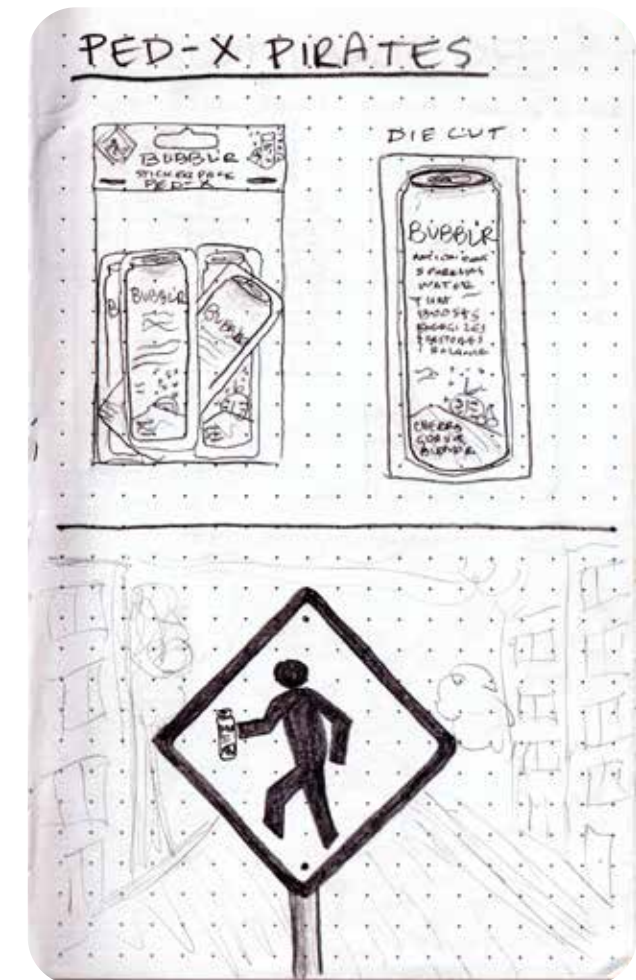 PED-X PIRATES
BUBBLR
STICKER PACK
PED-X
BUBBLR
BUBBLR
DIE CUT
BUBBLR
SPARKLING
WATER
THAT
BOOSTS
ENERGIZES
&RESTORES
BALANCE
CHERRY
GUAVA